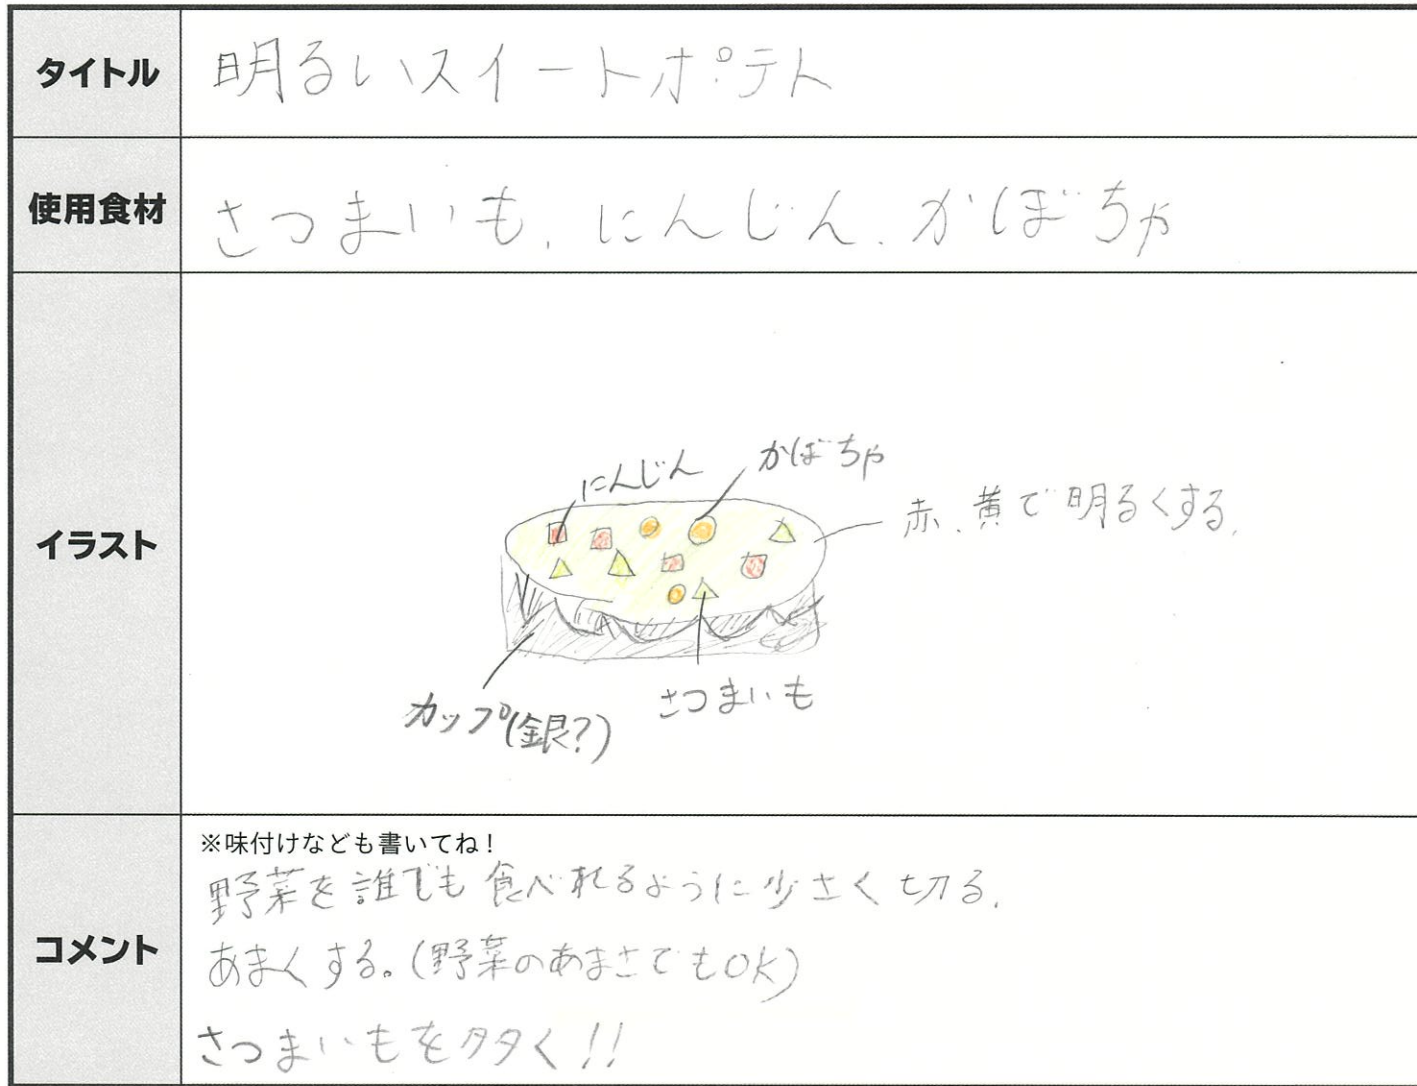 タイトル
明るいスイートポテト
使用食材
さつまいも、にんじん、かぼちゃ
イラスト
にんじん
かぼちゃ
赤、黄で明るくする。
カップ(銀?)
さつまいも
コメント
※味付けなども書いてね!
野菜を誰でも食べれるように少さく切る。
あまくする。(野菜のあまさでもOK)
さつまいもを多く!!